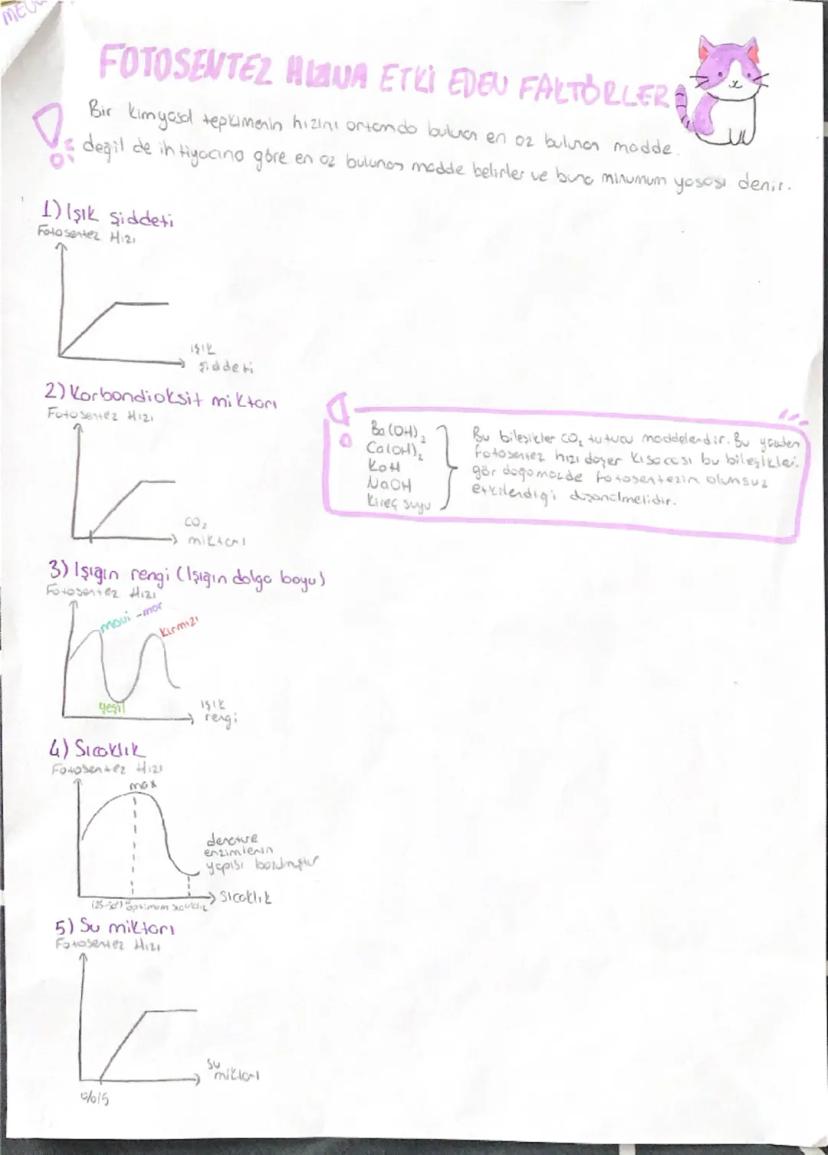 FOTOSENTEZ HIZINA ETKİ EDEN FAKTÖRLER
Bir kimyasal tepkimenin hızını ortamda bulunan en az bulunan madde
değil de ihtiyacına göre en az bulunan madde belirler ve buna minumum yasası denir.
1) Işık şiddeti
Fotosentez Hızı
ışık
şiddeti
2) Karbondioksit miktarı
Fotosentez Hızı
CO2
miktarı
Ba(OH)2
Ca(OH)2
KOH
NaOH
Kireç suyu
Bu bileşikler CO2 tutucu maddelerdir. Bu yüzden
fotosentez hızı düşer kısacası bu bileşikleri
gördüğümüzde fotosentezin olumsuz
etkilendiği düşünülmelidir.
3) Işığın rengi (Işığın dalga boyu)
Fotosentez Hızı
mavi-mor
kırmızı
yeşil
ışık
rengi
4) Sıcaklık
Fotosentez Hızı
max
denatüre
enzimlerin
yapısı bozulmuştur
optimum sıcaklık
Sıcaklık
5) Su miktarı
Fotosentez Hızı
su
miktarı
%15